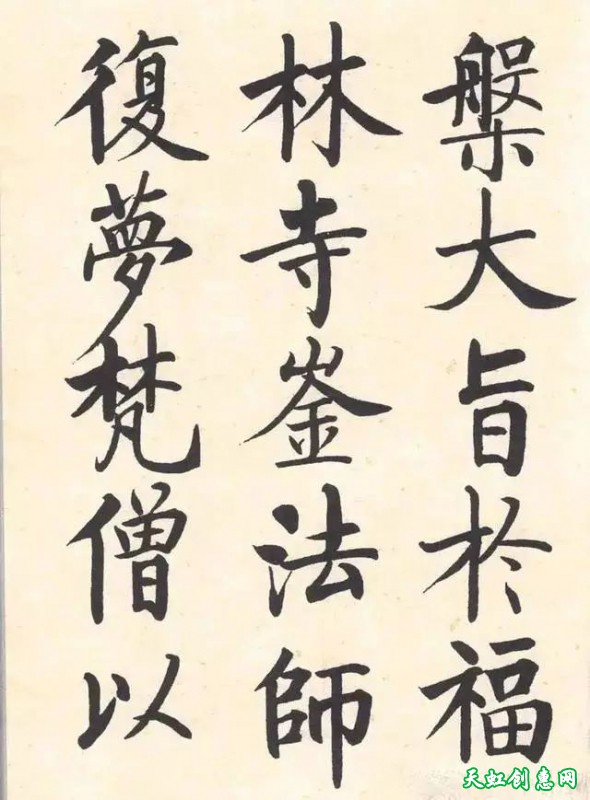 槃大旨於福
林寺崟法師
復夢梵僧以
天虹创惠网